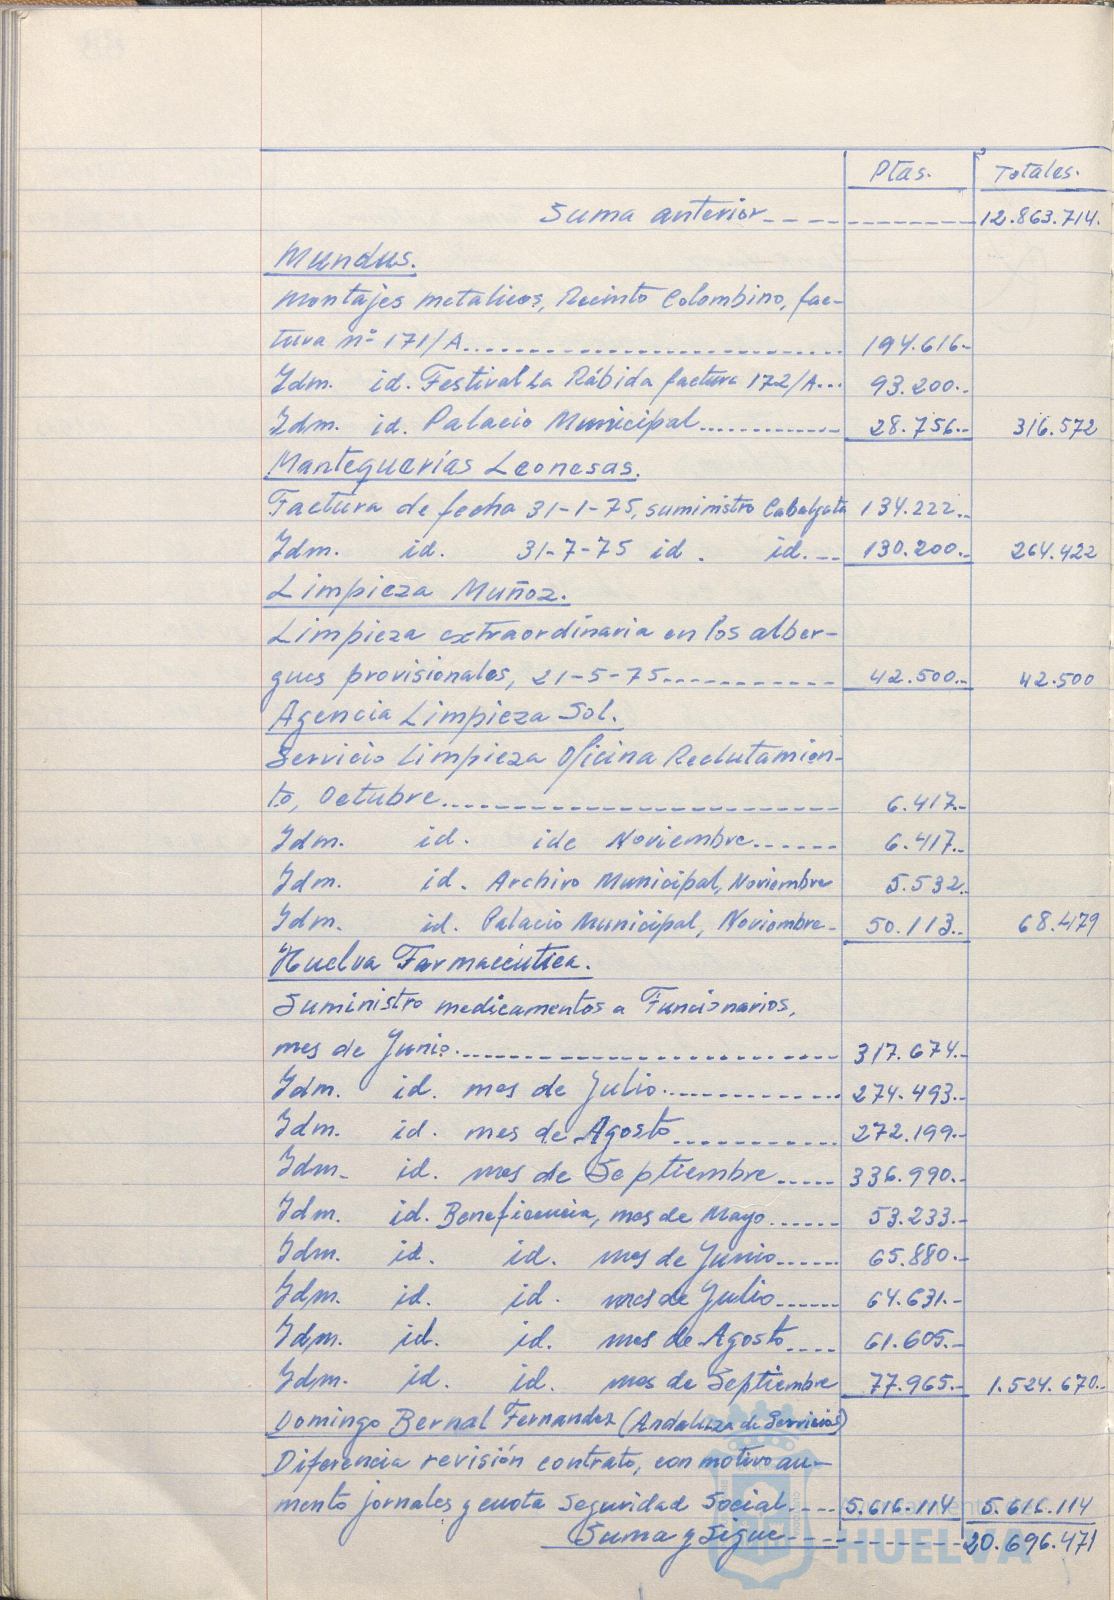 Ptas. Totales.
Suma anterior 12.863.714.
Mundus.
Montajes metalicos, Recinto Colombino, fac-
tura nº 171/A 194.616.-
Idm. id. Festival La Rábida factura 172/A 93.200.-
Idm. id. Palacio Municipal 28.756.- 316.572
Mantequerías Leonesas.
Factura de fecha 31-1-75, suministro Cabalgata 134.222.-
Idm. id. 31-7-75 id. id. 130.200.- 264.422
Limpieza Muñoz.
Limpieza extraordinaria en los alber-
gues provisionales, 21-5-75 42.500.- 42.500
Agencia Limpieza Sol.
Servicio Limpieza Oficina Reclutamien-
to, Octubre 6.417.-
Idm. id. ide Noviembre 6.417.-
Idm. id. Archivo Municipal, Noviembre 5.532.
Idm. id. Palacio Municipal, Noviembre 50.113.- 68.479
Huelva Farmaceútica.
Suministro medicamentos a Funcionarios,
mes de Junio 317.674.-
Idm. id. mes de Julio 274.493.-
Idm. id. mes de Agosto 272.199.-
Idm. id. mes de Septiembre 336.990.-
Idm. id. Beneficencia, mes de Mayo 53.233.-
Idm. id. id. mes de Junio 65.880.-
Idm. id. id. mes de Julio 64.631.-
Idm. id. id. mes de Agosto 61.605.-
Idm. id. id. mes de Septiembre 77.965.- 1.524.670.-
Domingo Bernal Fernandez (Andaluza de Servicios)
Diferencia revisión contrato, con motivo au-
mento jornales y cuota Seguridad Social 5.616.114 5.616.114
Suma y Sigue 20.696.471
HUELVA